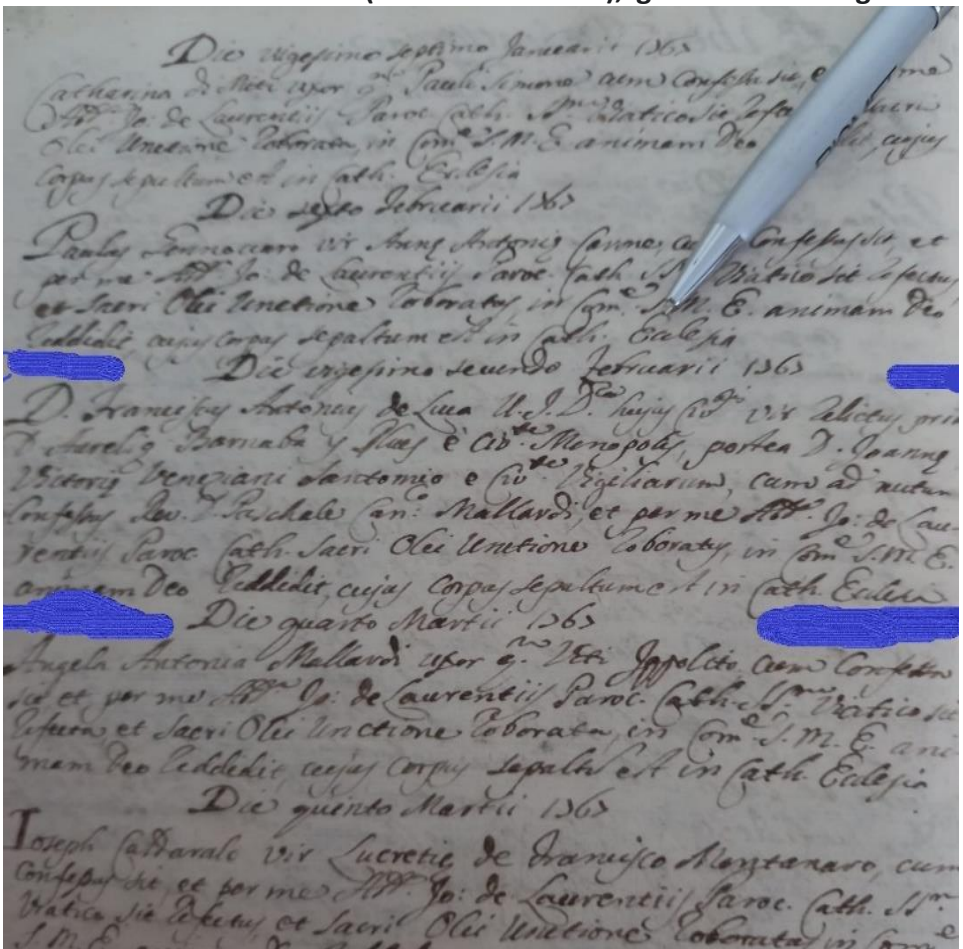 Die vigesimo septimo Januarii 1763
Catharina di Meti uxor qm Pauli Simone cum Confessa sit, et me
Jo: de Laurentiis Paroc. Cath. SSmo Viatico sit refecta Sacri
Olei Unctione roborata, in Come S. M. E. animam Deo cujus
Corpus sepultum est in Cath. Ecclesia
Die sexto Februarii 1763
Paulus vir Annę Antonię Confessus sit, et
per me Jo: de Laurentiis Paroc. Cath. SSmo Viatico sit refectus,
et Sacri Olei Unctione roboratus, in Come S. M. E. animam Deo
reddidit cujus corpus sepultum est in Cath. Ecclesia
Die vigesimo secundo Februarii 1763
D. Franciscus Antonius de Luca U. J. D. hujus vir relictus prius
D. Aurelię Barnaba e Civte Monopolis, postea D. Joannę
Victorię Veneziani Santomio e Civte Vigiliarum, cum ad nutum
Confessus Rev. D. Paschale Can: Mallardi, et per me Jo: de Lau-
rentiis Paroc. Cath. Sacri Olei Unctione roboratus, in Come S. M. E.
animam Deo reddidit, cujus corpus sepultum est in Cath. Ecclesia
Die quarto Martii 1763
Angela Antonia Mallardi uxor q. Viti Ippolito cum Confessa
sit et per me Jo: de Laurentiis Paroc. Cath. SSmo Viatico sit
refecta et Sacri Olei Unctione roborata, in Come S. M. E. ani
mam Deo reddidit, cujus corpus sepultu est in Cath. Ecclesia
Die quinto Martii 1763
Joseph vir Lucretię de Francisco Montanaro, cum
Confessus sit, et per me Jo: de Laurentiis Paroc. Cath. SSmo
Viatico sit refectus et Sacri Olei Unctione roborata in
S. M. E.